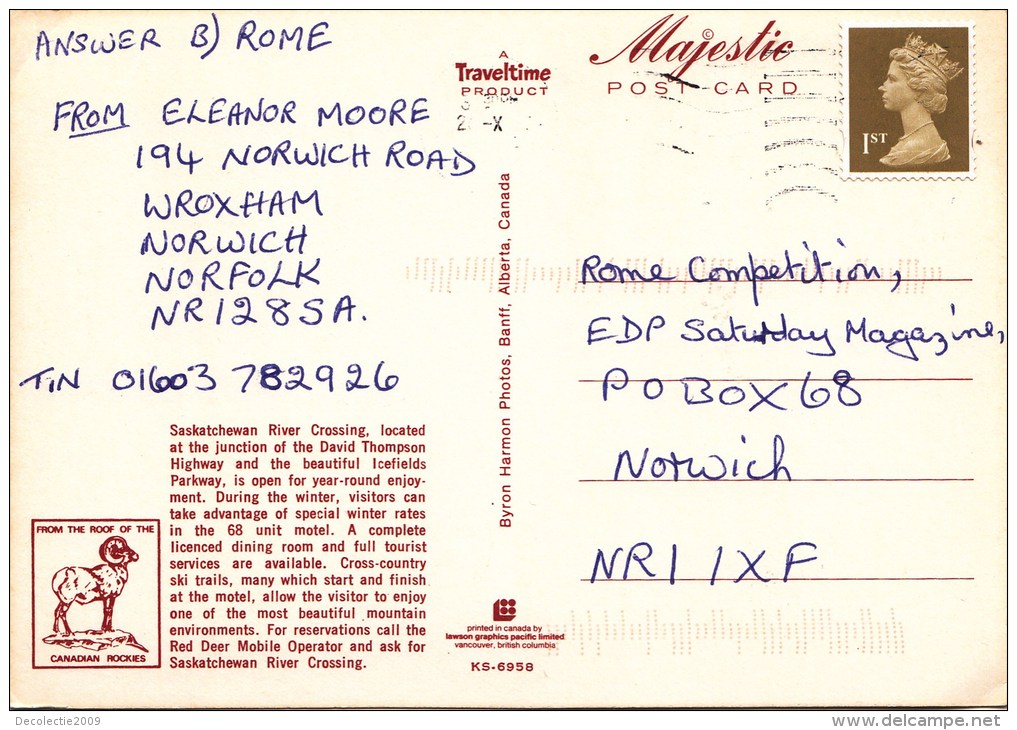 ANSWER B) ROME
FROM ELEANOR MOORE
194 NORWICH ROAD
WROXHAM
NORWICH
NORFOLK
NR128SA.
TIN 01603 782926
A
Traveltime
PRODUCT
Majestic
©
POST CARD
1ST
Rome Competition,
EDP Saturday Magazine,
PO BOX 68
Norwich
NR1 1XF
Saskatchewan River Crossing, located
at the junction of the David Thompson
Highway and the beautiful Icefields
Parkway, is open for year-round enjoy-
ment. During the winter, visitors can
take advantage of special winter rates
in the 68 unit motel. A complete
licenced dining room and full tourist
services are available. Cross-country
ski trails, many which start and finish
at the motel, allow the visitor to enjoy
one of the most beautiful mountain
environments. For reservations call the
Red Deer Mobile Operator and ask for
Saskatchewan River Crossing.
FROM THE ROOF OF THE
CANADIAN ROCKIES
Byron Harmon Photos, Banff, Alberta, Canada
printed in canada by
lawson graphics pacific limited
vancouver, british columbia
KS-6958
Decolectie2009
www.delcampe.net